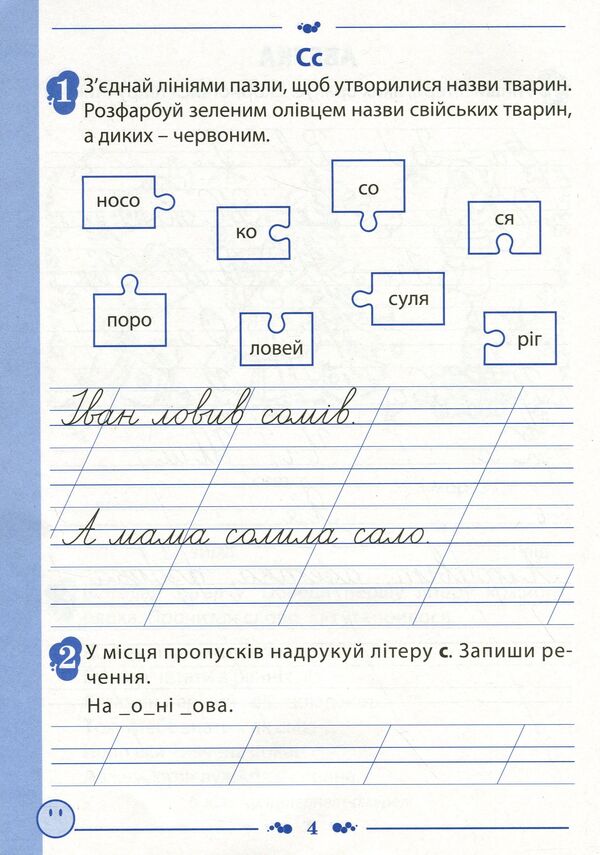 Сс
1 З’єднай лініями пазли, щоб утворилися назви тварин.
Розфарбуй зеленим олівцем назви свійських тварин,
а диких – червоним.
носо
ко
со
ся
поро
ловей
суля
ріг
Іван ловив сомів.
А мама солила сало.
2 У місця пропусків надрукуй літеру с. Запиши ре-
чення.
На _о_ні _ова.
4